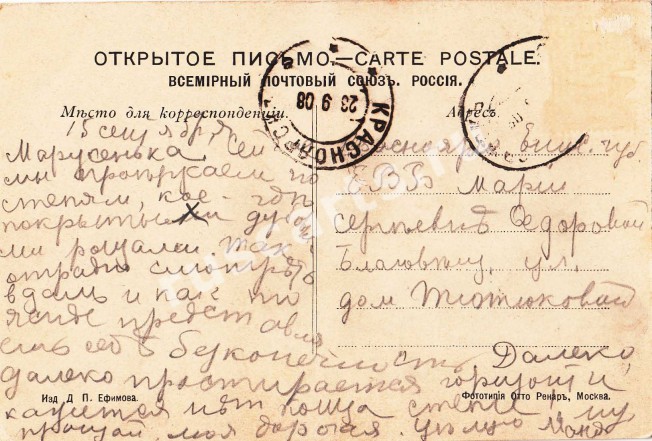 ОТКРЫТОЕ ПИСЬМО.—CARTE POSTALE.
ВСЕМІРНЫЙ ПОЧТОВЫЙ СОЮЗЪ. РОССІЯ.
Мѣсто для корреспонденціи.
Адресъ.
КРАСНОЯРСКЪ
23 9 08
15 сентября
Марусенька, сей
мы проѣзжаем по
степям, кое-гдѣ
покрытыми
ми рощами. Так
отрадно смотрѣть
вдаль и как то
яснѣе представля
ешь себѣ безконечность. Далеко
далеко простирается горизонт и
кажется нѣт конца степи
прощай, моя дорогая. цѣлую
Красноярск Енис. губ.
ЕВБ Маріи
Сергѣевнѣ Федоровой
Благовѣщ. ул.
дом Тютюковой
Изд Д П. Ефимова.
Фототипія Отто Ренаръ, Москва.